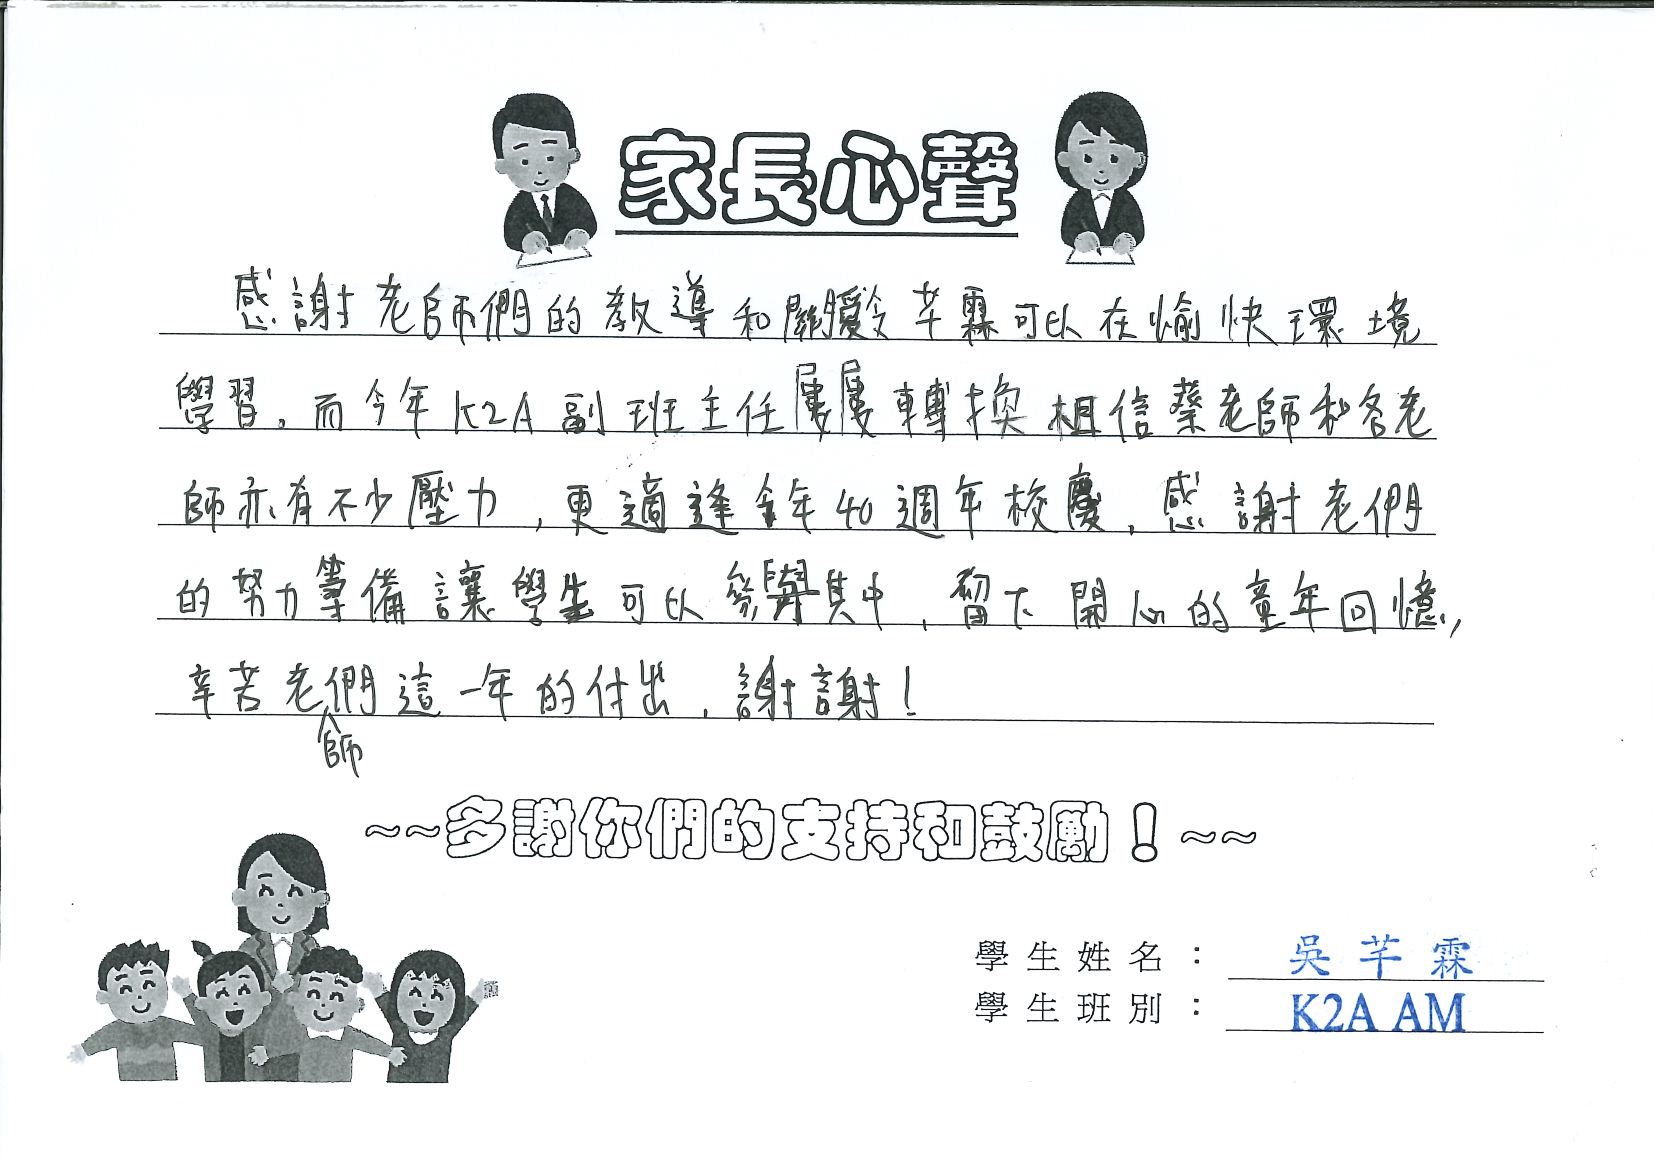 家長心聲
感謝老師們的教導和關愛令芊霖可以在愉快環境
學習。而今年K2A副班主任屢屢轉換相信蔡老師和各老
師亦有不少壓力,更適逢今年40週年校慶,感謝老們
的努力籌備讓學生可以參與其中,留下開心的童年回憶,
辛苦老們這一年的付出,謝謝!
師
~~多謝你們的支持和鼓勵!~~
學生姓名: 吳芊霖
學生班別: K2A AM